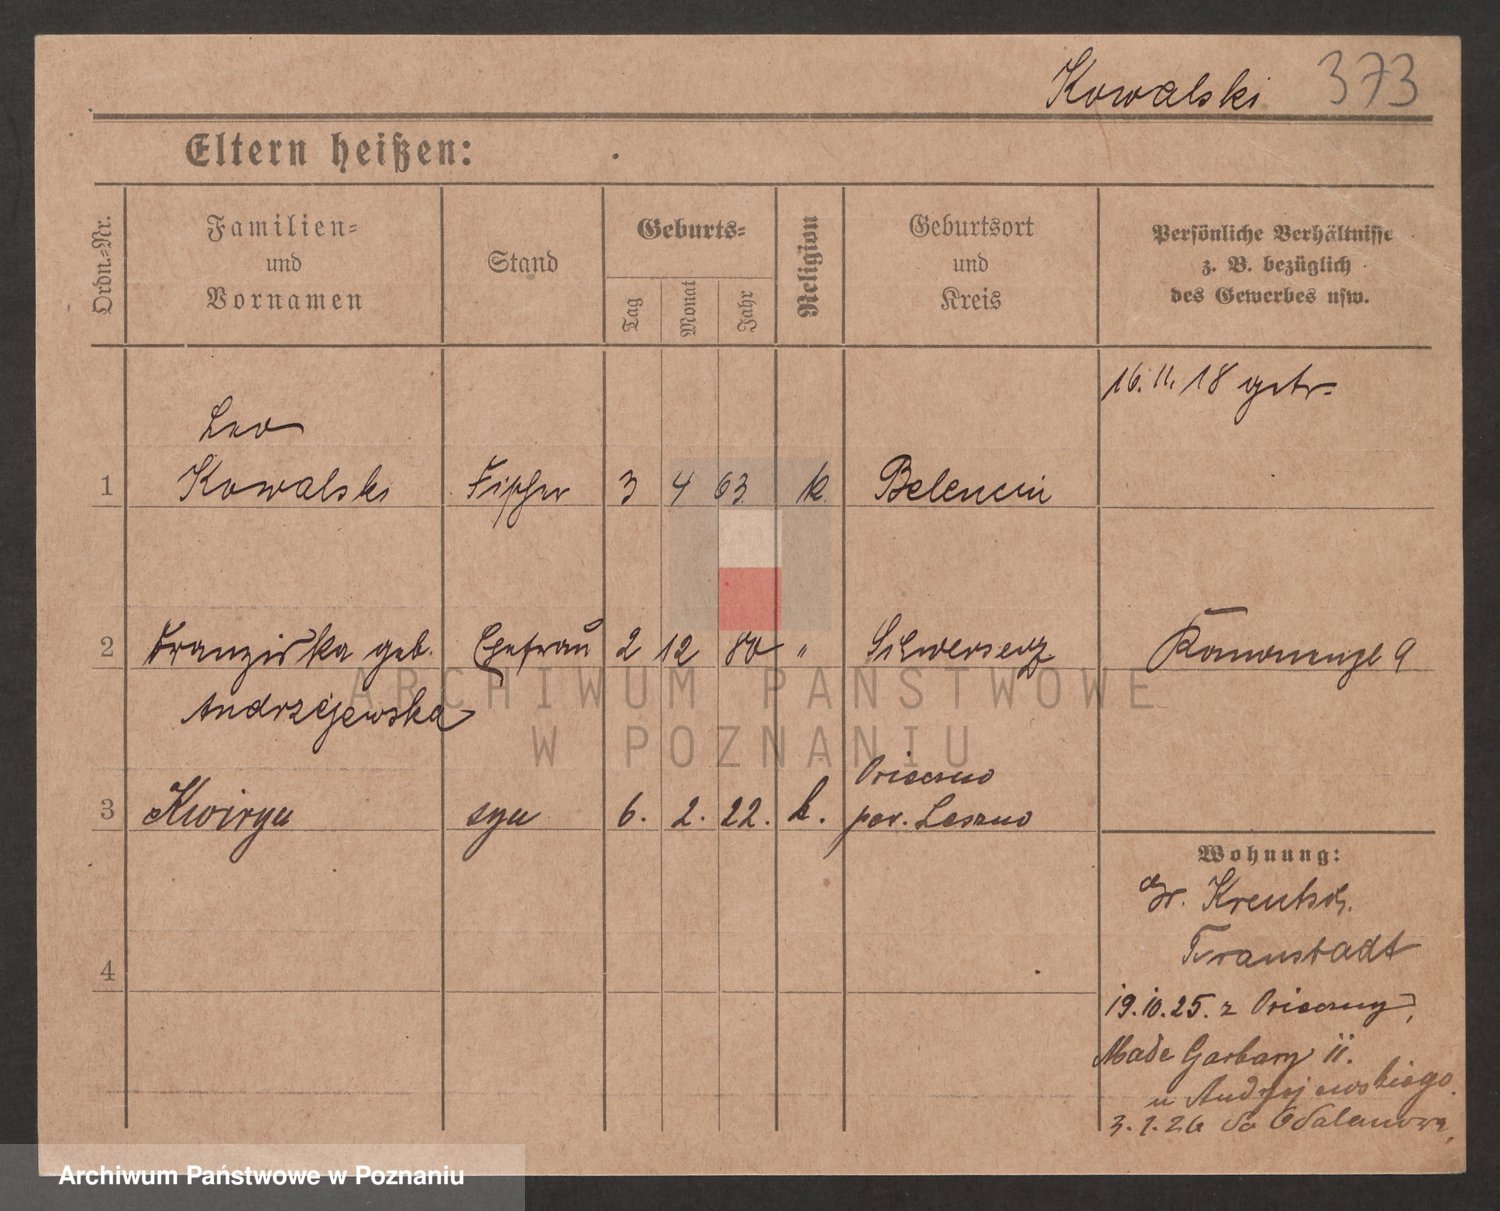 Kowalski 373
Eltern heißen:
Ordn.-Nr.
Familien-
und
Vornamen
Stand
Geburts-
Tag
Monat
Jahr
Religion
Geburtsort
und
Kreis
Persönliche Verhältnisse
z. B. bezüglich
des Gewerbes usw.
16.11.18 getr.
Leo
1 Kowalski Fischer 3 4 63 k. Belencin
2 Franziska geb. Ehefrau 2 12 80 "
Andrzejewska
3 syn 6. 2. 22. k. pow. Leszno
Wohnung:
Gr. Kreutsch.
Fraustadt
4
19.10.25. z
Małe Garbary 11.
u Andrzejewskiego
3.1.26 do Odolanowa,
ARCHIWUM PAŃSTWOWE
W POZNANIU
Archiwum Państwowe w Poznaniu